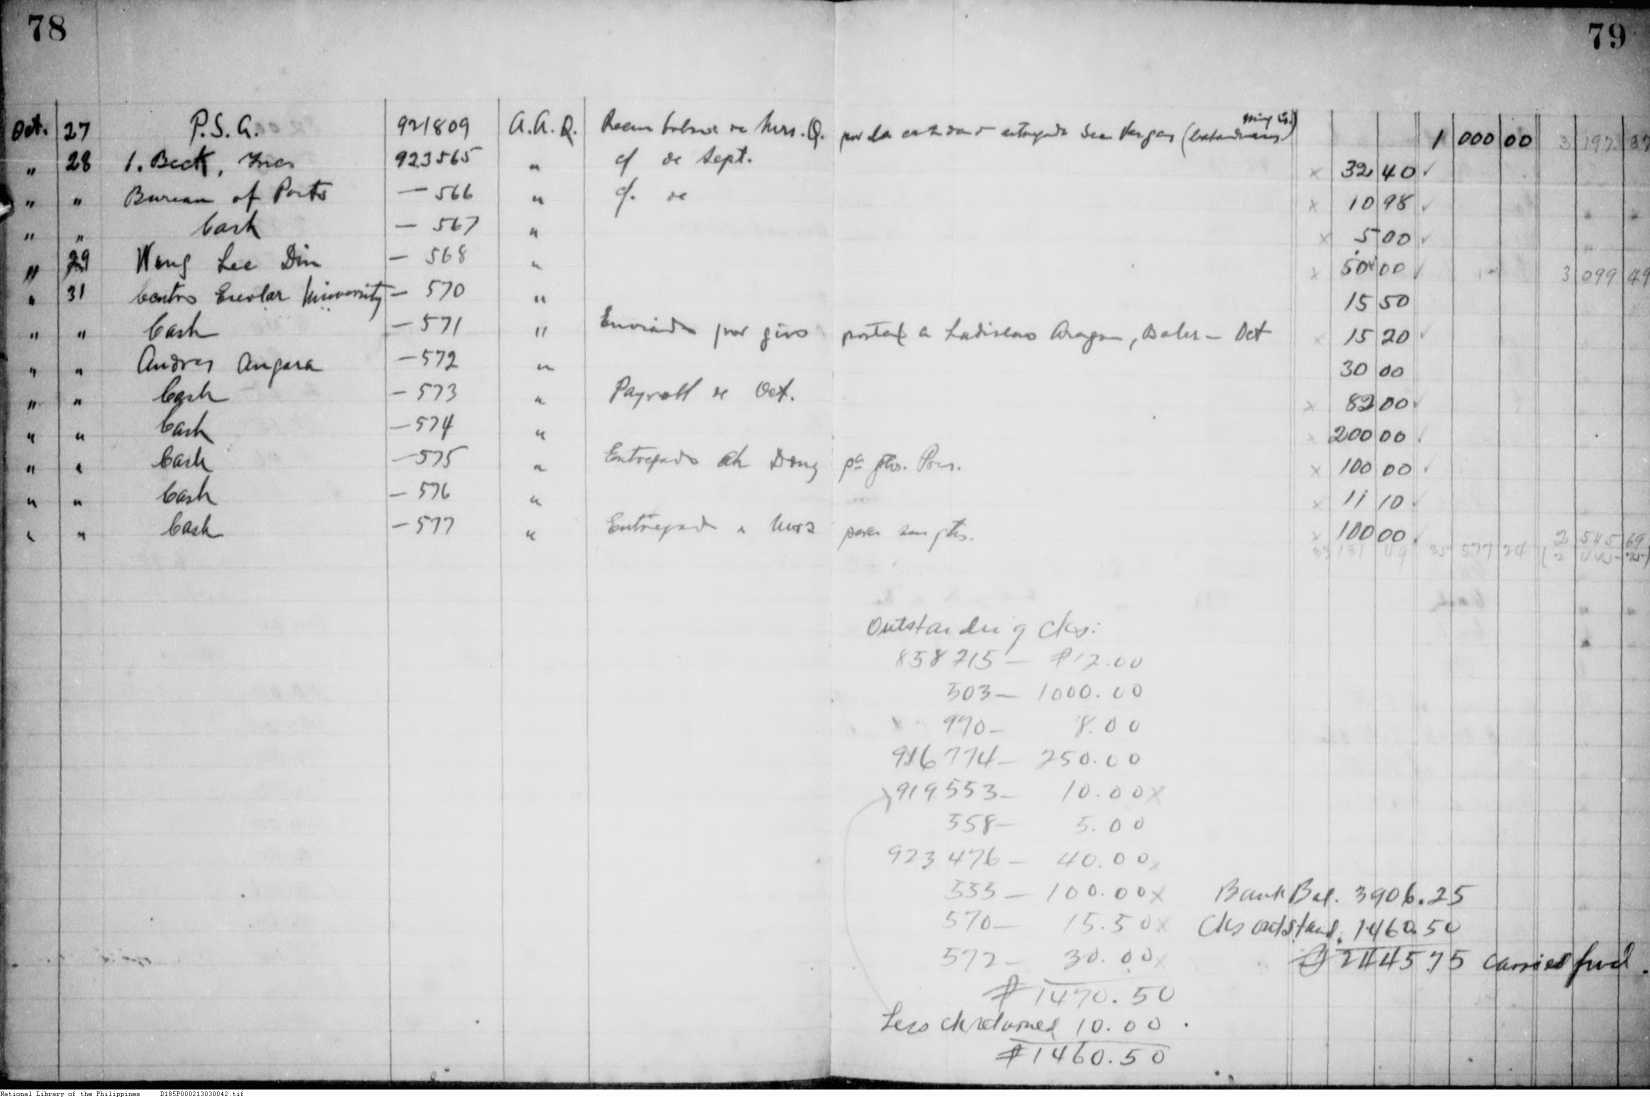 78
79
Oct. 27 P.S.A. 921809 A.A.Q. Mrs. Q. por la entregada 1 000 00 3 197 37
" 28 I. Beck, Inc. 923565 " c/ de Sept. x 32 40 ✓
" " Bureau of Posts — 566 " c/. de x 10 98 ✓
" " Cash — 567 " x 5 00 ✓
" 29 Wong Lee Din — 568 " x 50 00 ✓ 3 099 49
" 31 Centro Escolar University — 570 " 15 50
" " Cash — 571 " Enviado por giro postal a Ladislao Aragon, Baler — Oct x 15 20 ✓
" " Andres Angara — 572 " 30 00
" " Cash — 573 " Payroll de Oct. x 82 00 ✓
" " Cash — 574 " x 200 00 ✓
" " Cash — 575 " Entregado Ah Dong pa gtos. Prov. x 100 00 ✓
" " Cash — 576 " x 11 10 ✓
" " Cash — 577 " Entregado a Mrs para sus gtos. x 100 00 ✓ 2 545 69
35 577 24
Outstanding cks:
858215 — ₱12.00
303 — 1000.00
970 — 8.00
916774 — 250.00
919553 — 10.00 x
558 — 5.00
923476 — 40.00
533 — 100.00 x
570 — 15.50 x
572 — 30.00 x
₱1470.50
Less ck returned 10.00
₱1460.50
Bank Bal. 3906.25
Cks outstand. 1460.50
₱2445.75 carried fwd.
National Library of the Philippines D185P000213030042.tif